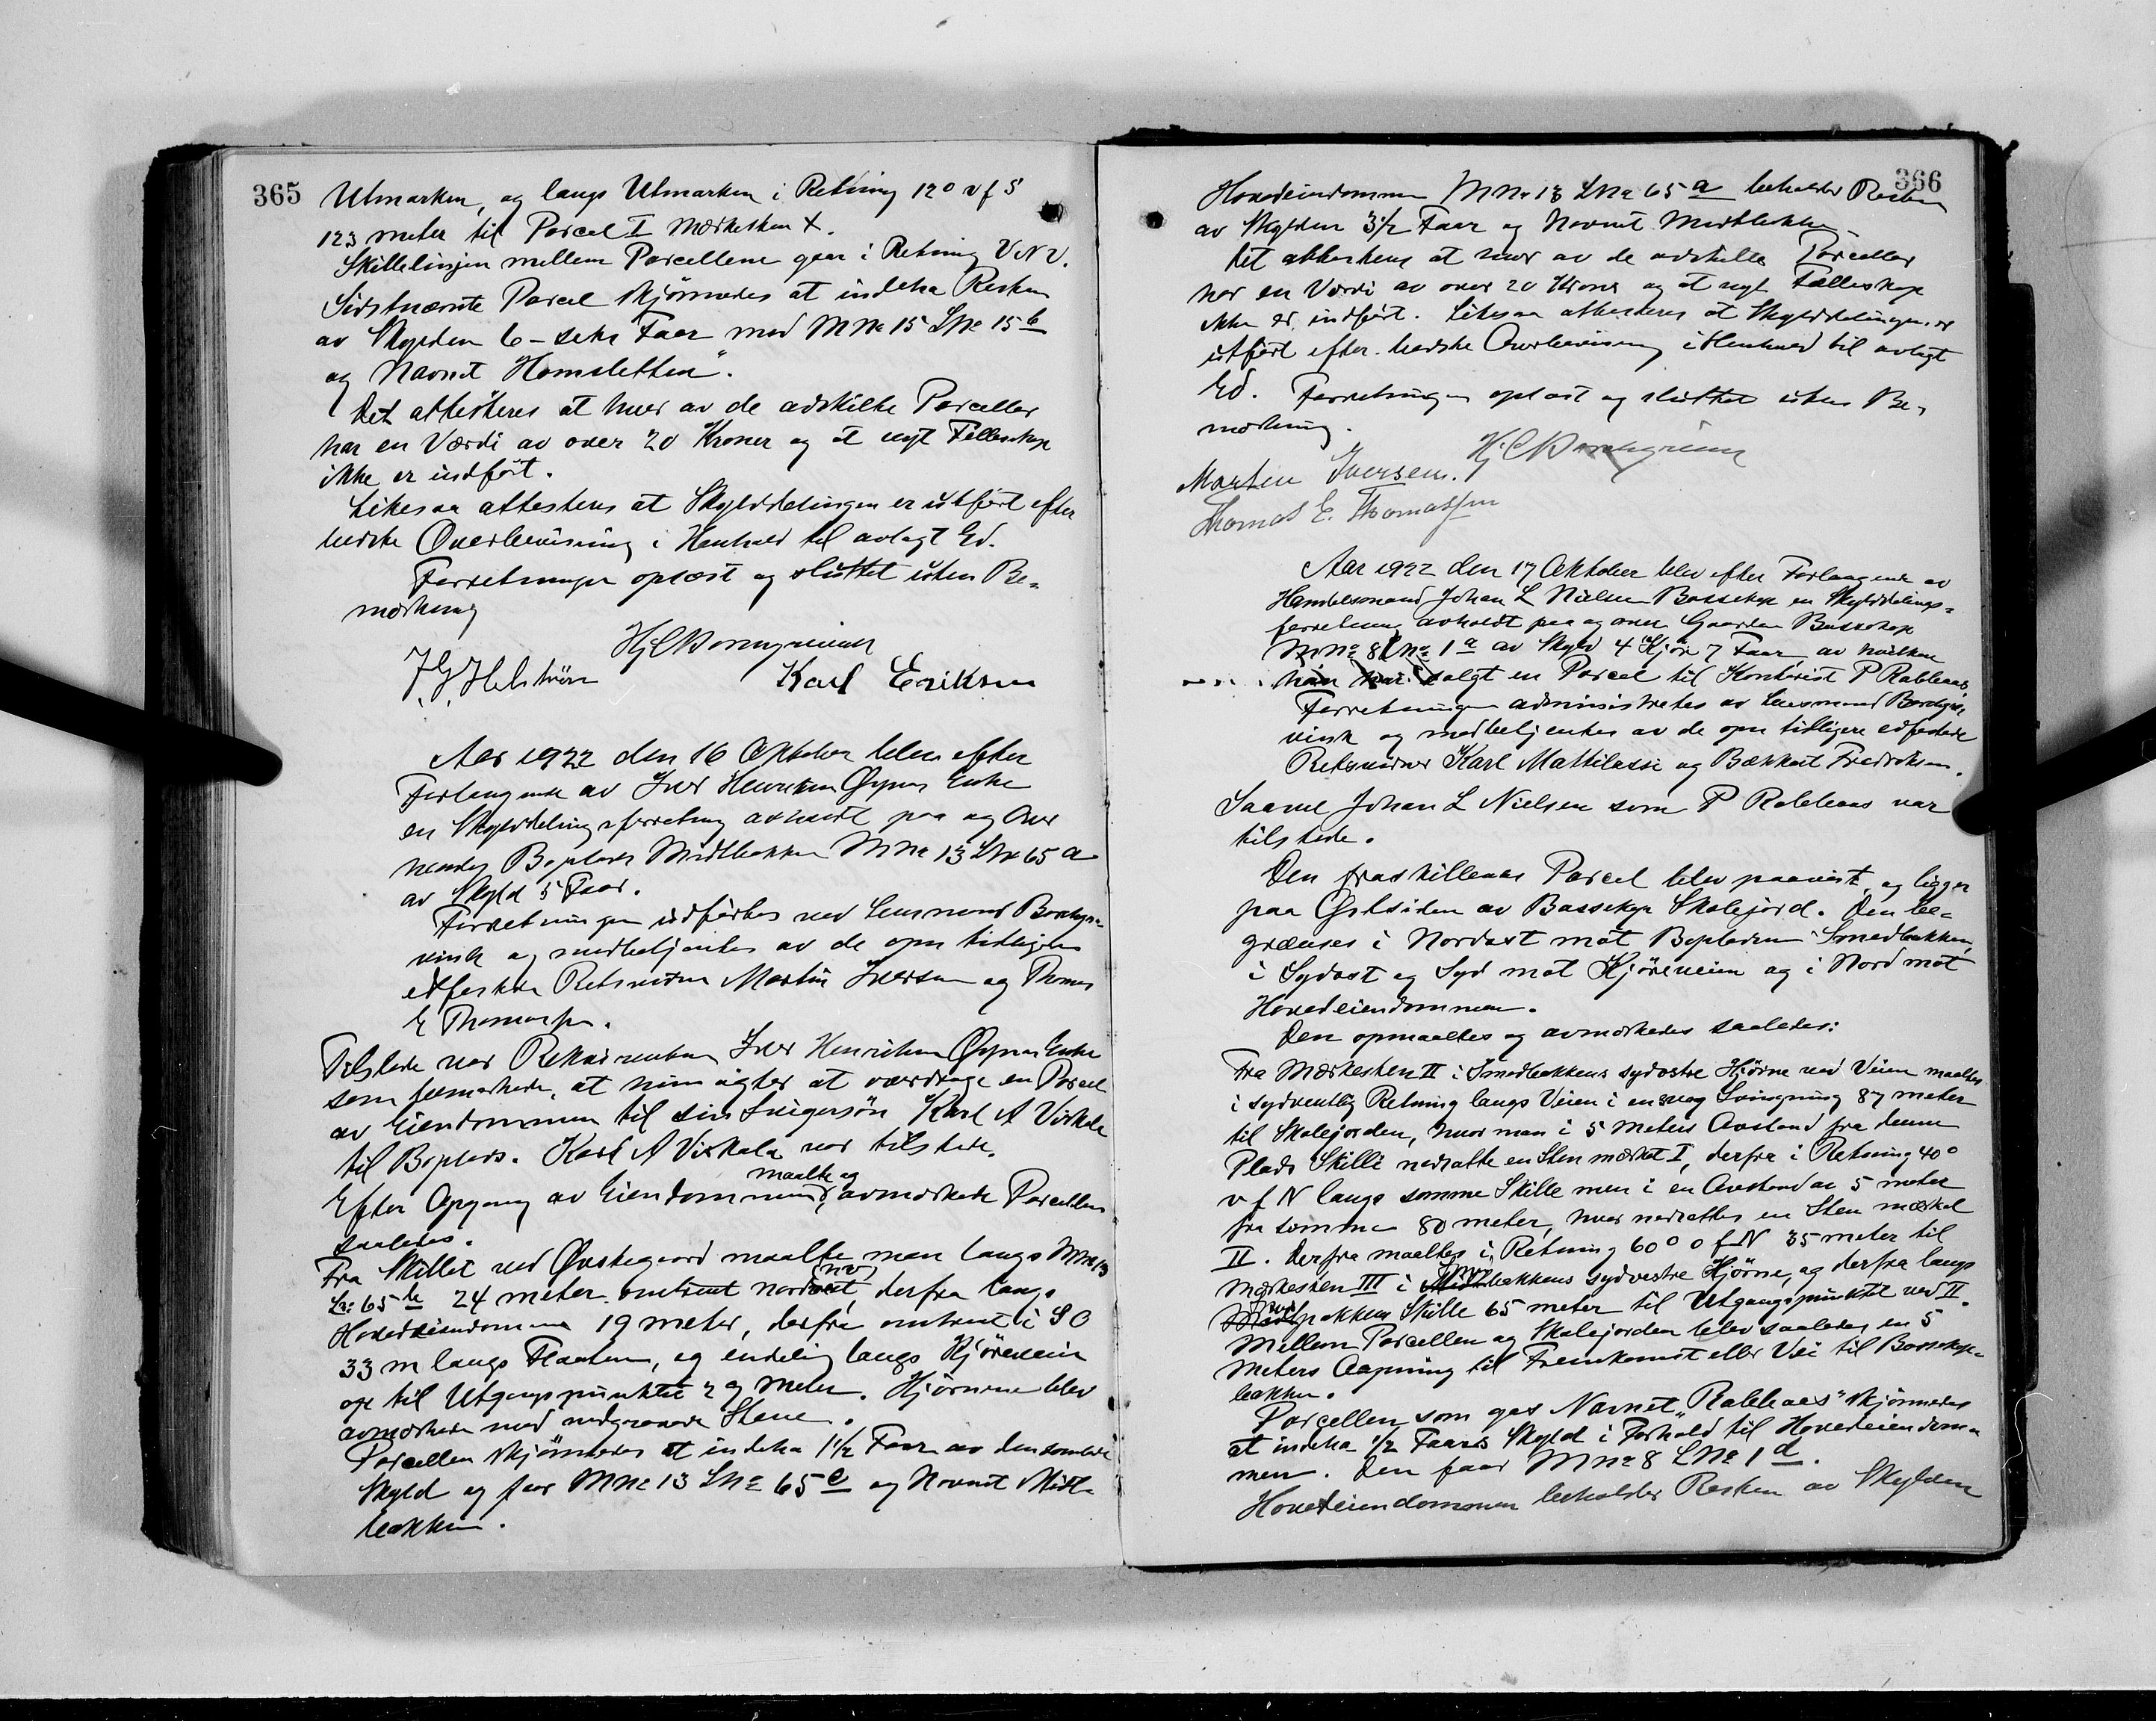 365
Utmarken, og langs Utmarken i Retning 12° v f S
123 meter til Parcel I Merkesten X.
Skillelinjen mellem Parcellene gaar i Retning VNV.
Sidstnævnte Parcel skjønnedes at indeha Resten
av Skylden 6 - seks Faar med MNo 15 LNo 15 b
og Navnet Homsletten".
Det attesteres at hver av de adskilte Parceller
har en Værdi av over 20 Kroner og at nyt Fellesskap
ikke er indført.
Likesaa attesteres at Skylddelingen er utført efter
bedste Overbevisning i Henhold til avlagt Ed.
Forretningen oplæst og sluttet uten Be-
mærkning
Karl Eriksen
Aar 1922 den 16 Oktober blev efter
Forlangende av Iver Henriksen Øynes Enke
en Skylddelingsforretning avholdt paa og over
hendes Boplads Midtbakken MNo 13 LNo 65 a
av Skyld 5 Faar.
Forretningen utførtes ved Lensmand Borchgre-
vink og medbetjentes av de opn tidligere
edfestede Retsvidner Martin Iversen og Thomas
E Thomassen.
Tilstede var Rekvirenten Iver Henriksen Øynes Enke
som bemerkede, at hun agter at overdrage en Parcel
av Eiendommen til sin Svigersøn Karl A Viskala
til Boplads. Karl A Viskala var tilstede.
Efter Opgang av Eiendommen maalte og avmerkede Parcellen
saaledes.
Fra Skillet ved Østregaard maalte man langs MNo 13
LNo 65 b 24 meter omtrent nordvest, derfra langs
Hovedeiendommen 19 meter, derfra omtrent i SO
33 m langs Flaaten, og endelig langs Kjøreveien
op til Utgangspunktet 29 meter. Hjørnene blev
avmerkede med nedgravede Stene.
Parcellen skjønnedes at indeha 1½ Faar av den samlede
Skyld og faar MNo 13 LNo 65 e og Navnet Midt-
bakken.
366
Hovedeiendommen MNo 13 LNo 65 a beholder Resten
av Skylden 3½ Faar og Navnet Midtbakken
Det attesteres at hver av de adskilte Parceller
har en Værdi av over 20 Kroner og at nyt Fælleskap
ikke er indført. Likesaa attesteres at Skylddelingen er
utført efter bedste Overbevisning i Henhold til avlagt
Ed. Forretningen oplæst og sluttet uten Be-
mærkning.
Martin Iversen.
Thomas E. Thomassen
Aar 1922 den 17 Oktober blev efter Forlangende av
Handelsmand Johan L Nielsen Bossekop en Skylddelings-
forretning avholdt paa og over Gaarden Bossekop
MNo 8 LNo 1 a av Skyld 4 Kjør 7 Faar, av hvilken
han har solgt en Parcel til Kontorist P Rabbaas.
Forretningen administreres av Lensmand Borchgre-
vink og medbetjentes av de opn tidligere edfestede
Retsvidner Karl Mattilassi og Fredriksen.
Saavel Johan L Nielsen som P Rabbaas var
tilstede.
Den fraskillende Parcel blev paavist, og ligger
paa Østsiden av Bossekop Skolejord. Den be-
grænses i Nordøst mot Bopladsen Smedbakken,
i Sydøst og Syd mot Kjøreveien og i Nord mot
Hovedeiendommen.
Den opmaaltes og avmerkedes saaledes:
Fra Mærkesten II i Smedbakkens sydøstre Hjørne ved Veien maaltes
i sydvestlig Retning langs Veien i en svag Svingning 87 meter
til Skolejorden, hvor man i 5 meters Avstand fra denne
Plads Skille nedsatte en Sten mærket I, derfra i Retning 40°
v f N langs samme Skille men i en Avstand av 5 meter
fra samme 80 meter, hvor nedsattes en Sten mærket
II. Derfra maaltes i Retning 60° o f N 35 meter til
Mærkesten III i Smedbakkens sydvestre Hjørne, og derfra langs
Smedbakkens Skille 65 meter til Utgangspunktet ved II.
Mellem Parcellen og Skolejorden blev saaledes en 5
Meters Aapning til Fremkomst eller Vei til Bossekop-
bakken.
Parcellen som gas Navnet „Rabbaas" skjønnedes
at indeha ½ Faars Skyld i Forhold til Hovedeiendom-
men. Den faar MNo 8 LNo 1 d.
Hovedeiendommen beholder Resten av Skylden